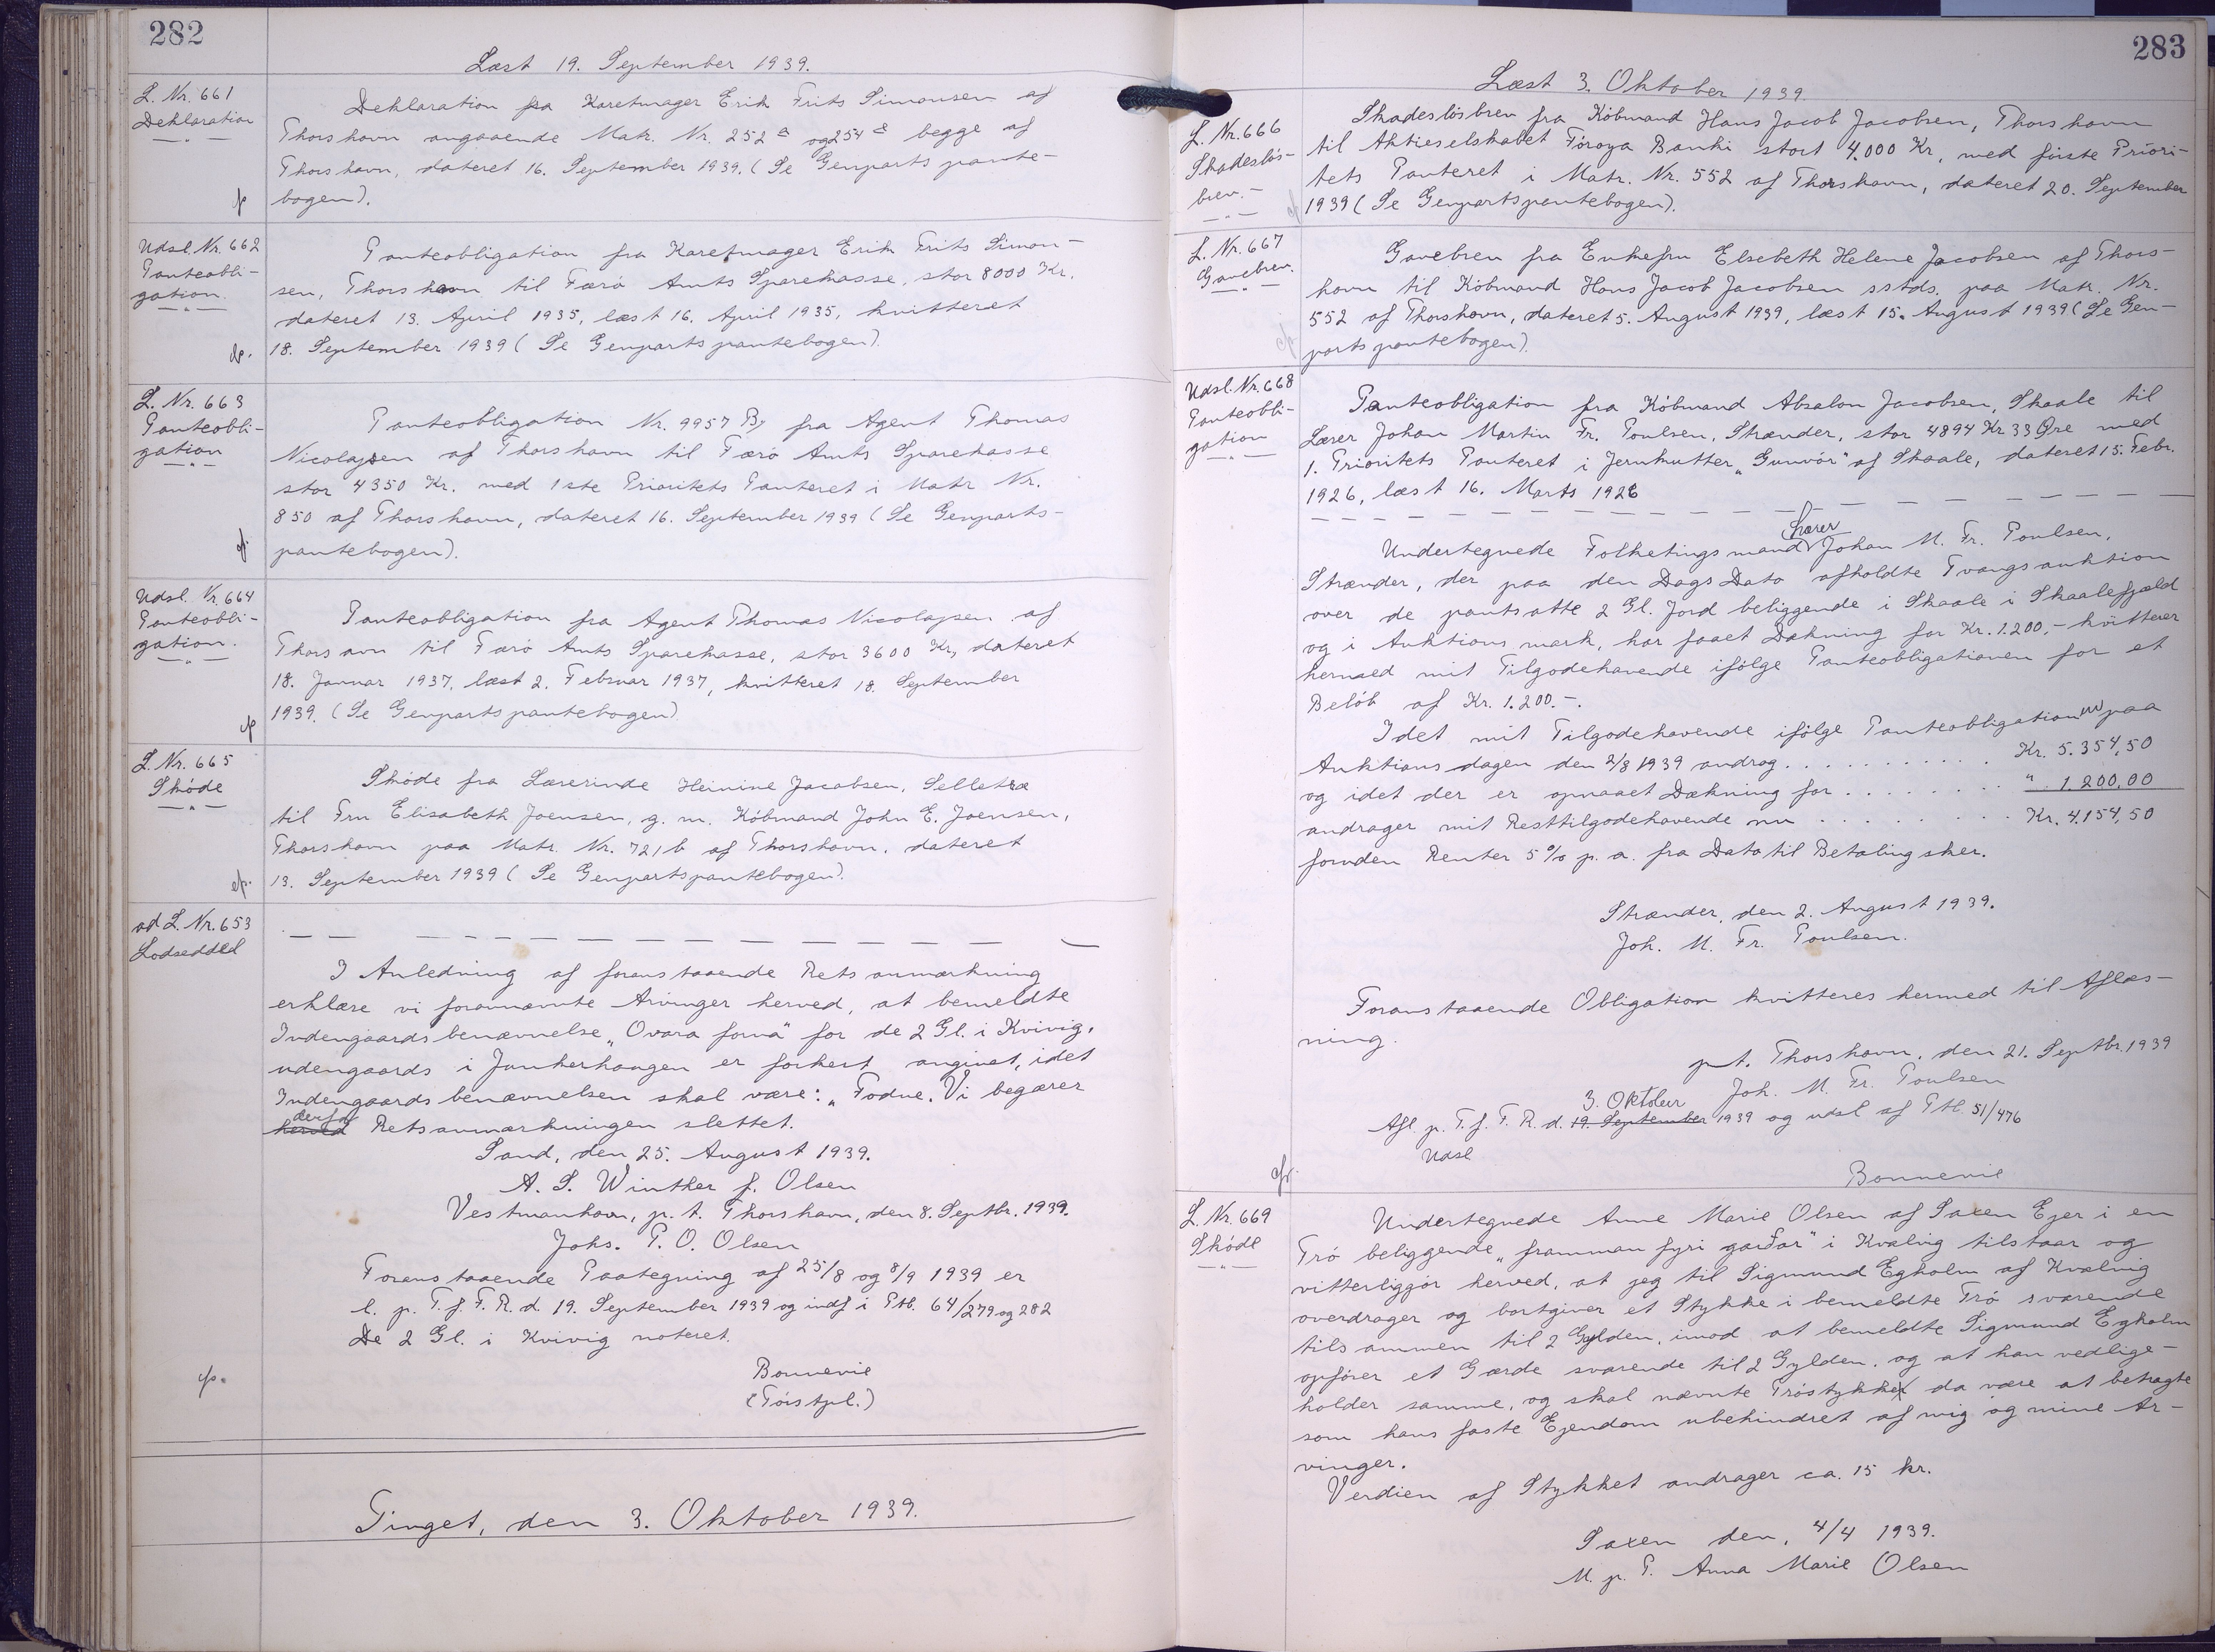 282
Læst 19. September 1939.
L. Nr. 661
Deklaration
Deklaration fra Karetmager Erik Frits Simonsen af
Thorshavn angaaende Matr. Nr. 252 a og 254 a begge af
Thorshavn, dateret 16. September 1939. (Se Genparts pante-
bogen).
Udsl. Nr. 662
Panteobli-
gation.
Panteobligation fra Karetmager Erik Frits Simon-
sen, Thorshavn til Færø Amts Sparekasse, stor 8000 Kr.
dateret 13. April 1935, læst 16. April 1935, kvitteret
18. September 1939 (Se Genparts pantebogen).
L. Nr. 663
Panteobli-
gation
Panteobligation Nr. 9957 By fra Agent Thomas
Nicolajsen af Thorshavn til Færø Amts Sparekasse
stor 4350 Kr. med 1ste Prioritets Panteret i Matr Nr.
850 af Thorshavn, dateret 16. September 1939 (Se Genparts-
pantebogen).
Udsl. Nr. 664
Panteobli-
gation.
Panteobligation fra Agent Thomas Nicolajsen af
Thors avn til Færø Amts Sparekasse, stor 3600 Kr, dateret
18. Januar 1937, læst 2. Februar 1937, kvitteret 18. September
1939. (Se Genparts pantebogen)
L. Nr. 665
Skøde
Skøde fra Lærerinde Heinine Jacobsen, Selletræ
til Fru Elisabeth Joensen, g. m. Købmand John E. Joensen,
Thorshavn paa Matr. Nr. 721 b af Thorshavn, dateret
13. September 1939 (Se Genpartspantebogen).
ad L. Nr. 653
Lodseddel
I Anledning af foranstaaende Retsanmærkning
erklære vi forannævnte Arvinger herved, at bemeldte
Indengaardsbenævnelse „Ovara forva“ for de 2 Gl. i Kvivig,
udengaards i Junkerhaugen er forkert angivet, idet
Indengaards benævnelsen skal være: „Fodne. Vi begærer
derfor
herved Retsanmærkningen slettet.
Sand, den 25. August 1939.
A. S. Winther f. Olsen
Vestmanhavn, p. t. Thorshavn, den 8. Septbr. 1939.
Johs. P. O. Olsen
Foranstaaende Paategning af 25/8 og 8/9 1939 er
l. p. T. f. F. R. d. 19. September 1939 og indf i Ptb. 64/279 og 282
De 2 Gl. i Kvivig noteret.
Bonnevie
Tinget, den 3. Oktober 1939.
283
Læst 3. Oktober 1939.
L. Nr. 666
Skadesløs-
brev.-
Skadesløsbrev fra Købmand Hans Jacob Jacobsen, Thorshavn
til Aktieselskabet Føroya Banki stort 4.000 Kr, med første Priori-
tets Panteret i Matr. Nr. 552 af Thorshavn, dateret 20. September
1939 (Se Genpartspantebogen).
L. Nr. 667
Gavebrev.
Gavebrev fra Enkefru Elsebeth Helene Jacobsen af Thors-
havn til Købmand Hans Jacob Jacobsen sstds. paa Matr. Nr.
552 af Thorshavn, dateret 5. August 1939, læst 15. August 1939 (Se Gen-
parts pantebogen).
Udsl. Nr. 668
Panteobli-
gation
Panteobligation fra Købmand Absalon Jacobsen, Skaale til
Lærer Johan Martin Fr. Poulsen, Strænder, stor 4894 Kr 33 Øre med
1. Prioritets Panteret i Jernkutter „Gunvör“ af Skaale, dateret 15. Febr.
1926, læst 16. Marts 1926
Lærer
Undertegnede Folketingsmand Johan M. Fr. Poulsen,
Strænder, der paa den Dags Dato afholdte Tvangsauktion
over de pantsatte 2 Gl. Jord beliggende i Skaale i Skaalefjæld
og i Auktions mark, har faaet Dækning for Kr. 1.200,- kvitterer
hermed mit Tilgodehavende ifølge Panteobligationen for et
Beløb af Kr. 1.200.-.
Idet mit Tilgodehavende ifølge Panteobligationen paa
Auktionsdagen den 2/8 1939 androg . . . . . . . . . . Kr. 5.354,50
og idet der er opnaaet Dækning for . . . . . . . . " 1.200,00
andrager mit Resttilgodehavende nu . . . . . . . . . Kr. 4.154,50
foruden Renter 5 % p. a. fra Dato til Betaling sker.
Strænder, den 2. August 1939.
Joh. M. Fr. Poulsen.
Foranstaaende Obligation kvitteres hermed til Aflæs-
ning.
p. t. Thorshavn, den 21. Septbr. 1939
Joh. M. Fr. Poulsen
3. Oktober
Afl. p. T. f. F. R. d. 19. September 1939 og udsl af Ptb. 51/476
Udsl
Bonnevie
L. Nr. 669
Skøde
Undertegnede Anne Marie Olsen af Saxen Ejer i en
Trø beliggende „framman fyri garðar“ i Kvalvig tilstaar og
vitterliggør herved, at jeg til Sigmund Egholm af Kvalvig
overdrager og bortgiver et Stykke i bemeldte Trø svarende
tilsammen til 2 Gylden, imod at bemeldte Sigmund Egholm
opfører et Gærde svarende til 2 Gylden, og at han vedlige-
holder samme, og skal nævnte Trøstykke da være at betragte
som hans faste Ejendom ubehindret af mig og mine Ar-
vinger.
Verdien af Stykket andrager ca. 15 kr.
Saxen den, 4/4 1939.
M. p. P. Anna Marie Olsen